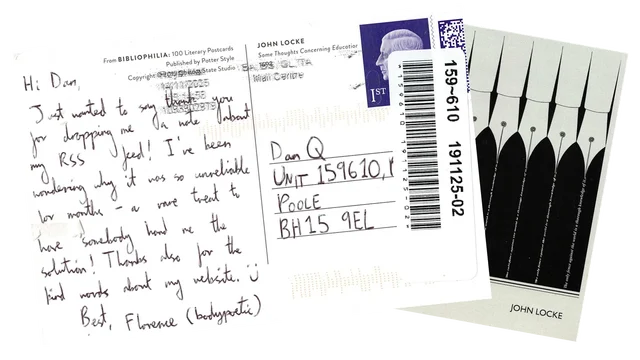 From BIBLIOPHILIA: 100 Literary Postcards
Published by Potter Style
Copyright State Studio
JOHN LOCKE
Some Thoughts Concerning Education
Mail Centre
1ST
Hi Dan,
Just wanted to say thank you
for dropping me a note about
my RSS feed! I've been
wondering why it was so unreliable
for months – a rare treat to
have somebody hand me the
solution! Thanks also for the
kind words about my website. :)
Best, Florence (bodypoetic)
Dan Q
UNIT 159610,
POOLE
BH15 9EL
159-610 191125-02
JOHN LOCKE